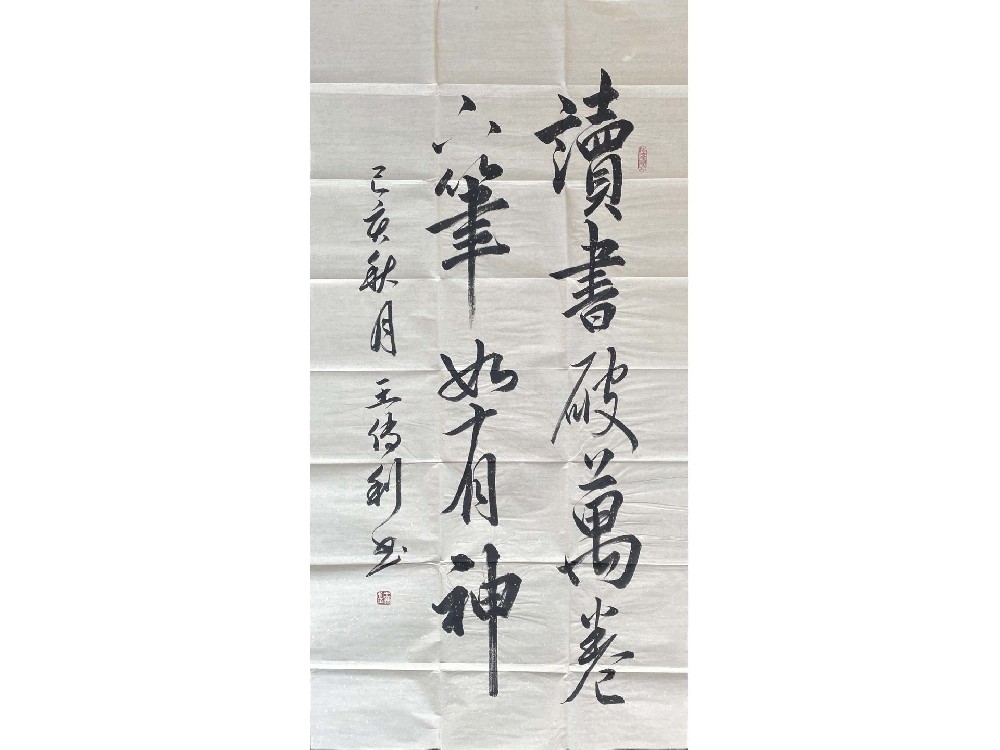 讀書破萬卷
下筆如有神
己亥秋月 王傳利书